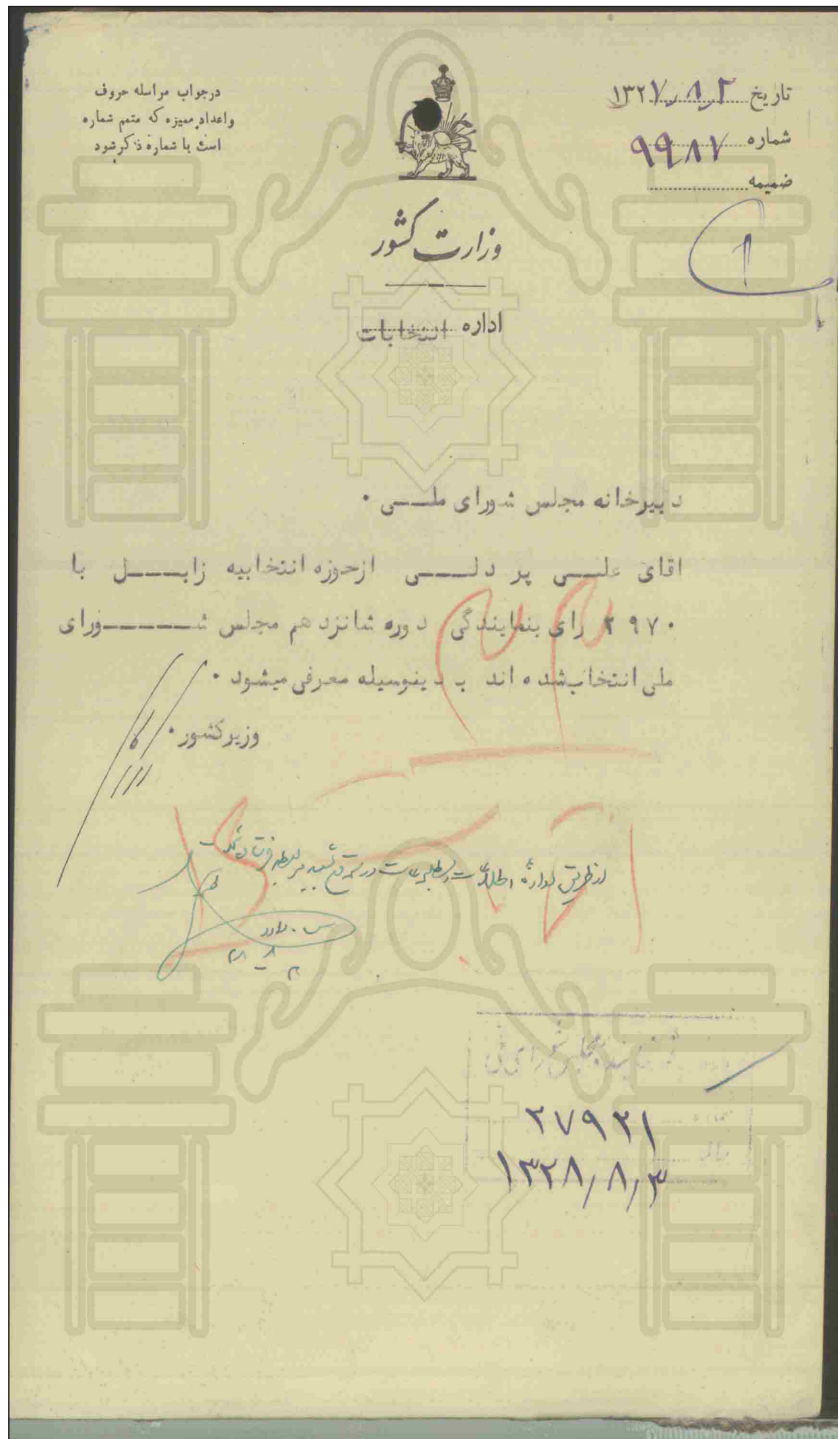 درجواب مراسله حروف
واعداد ممیزه که متمم شماره
است با شماره ذکر شود
تاریخ ۱۳۲۷/۸/۲
شماره ۹۹۸۷
ضمیمه
وزارت کشور
اداره انتخابات
دبیرخانه مجلس شورای ملی ۰
اقای علی پر دلی ازحوزه انتخابیه زابل با
۲۹۷۰ رای بنمایندگی دوره شانزدهم مجلس شورای
ملی انتخاب شده اند بدینوسیله معرفی میشود ۰
وزیر کشور ۰
از طریق اداره
مجلس شورای ملی
۲۷۹۲۱
۱۳۲۸/۸/۳